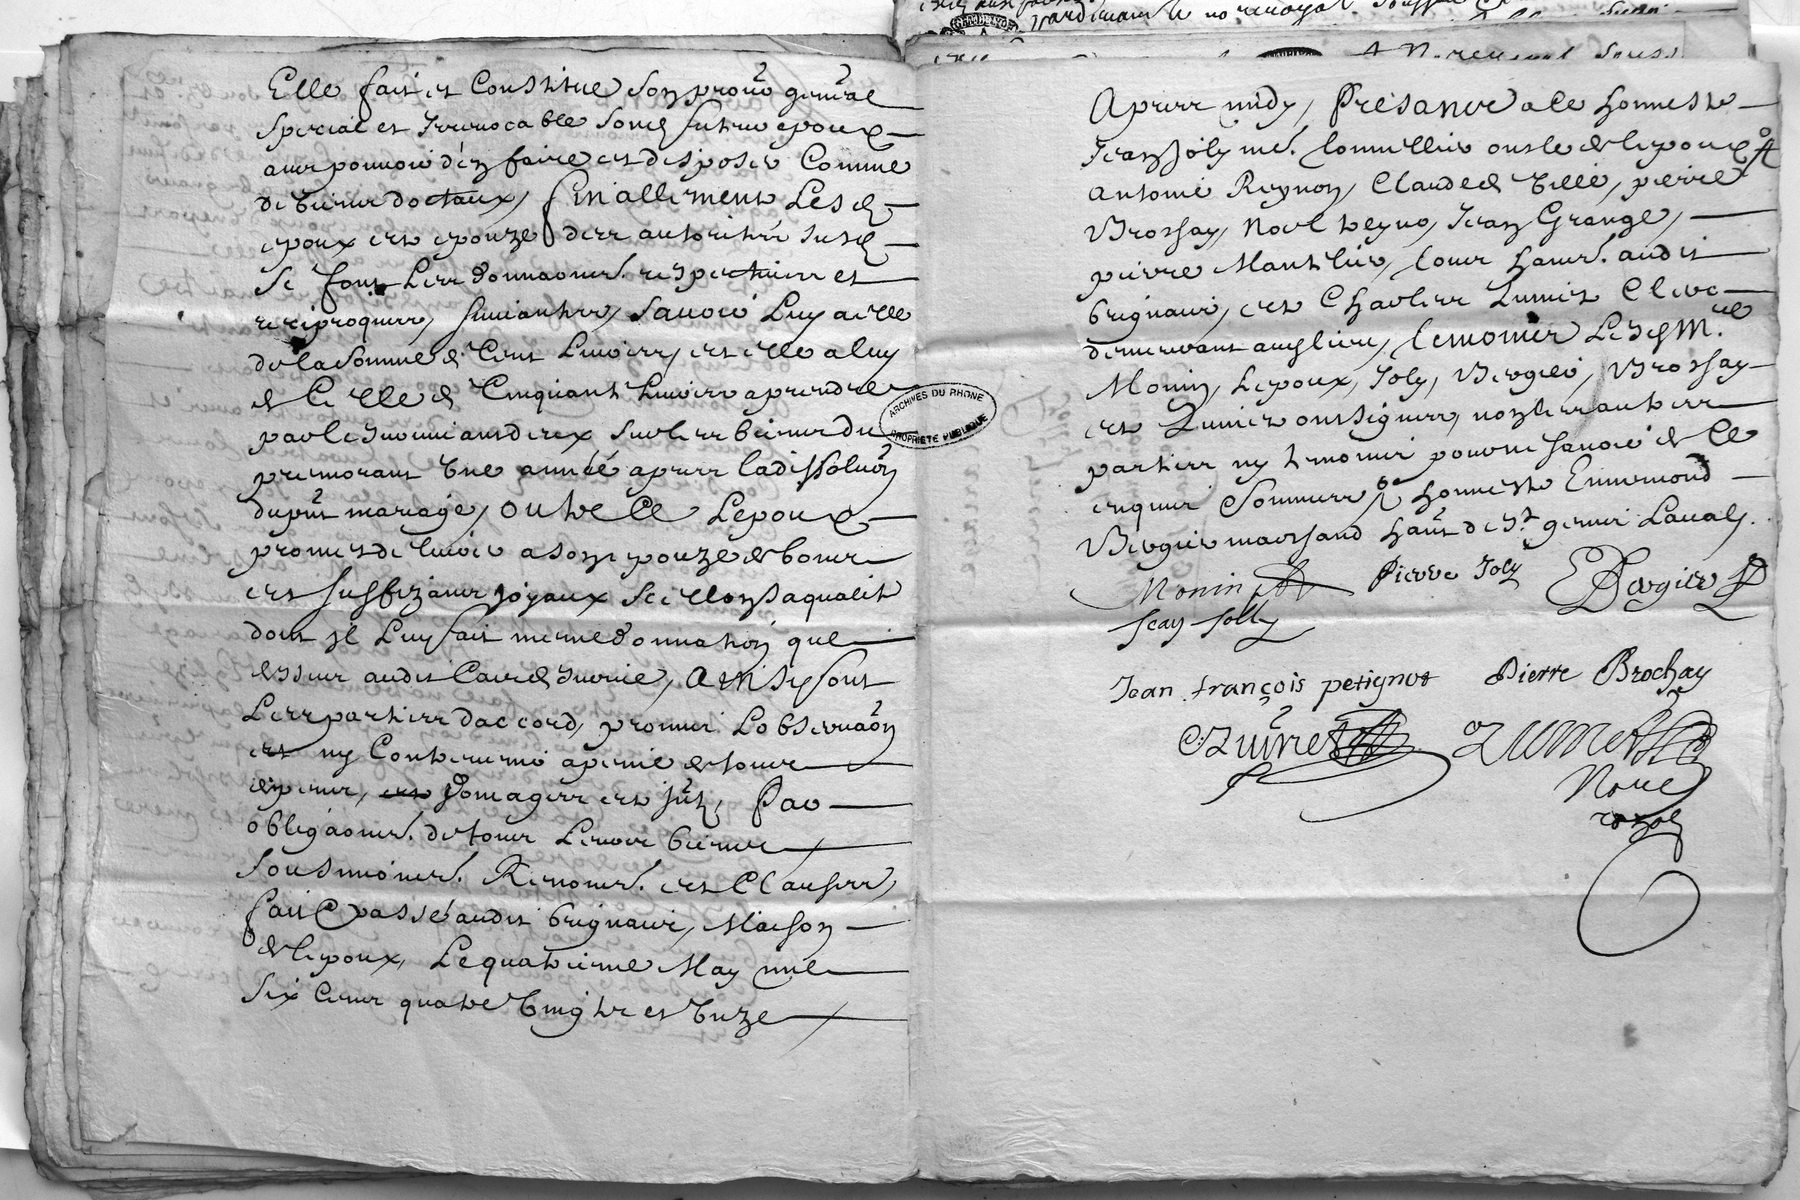 Elle fait et Constitue son procur general
special et Irrevocable sond futur epoux
avec pouvoir d'en faire et disposer Comme
de biens doctaux, finallement Lesd
epoux et epouze derr authorithé susd
se font Lerr donnaonsr. respectivers et
reciproquers, suivantter, Savoir Luy a elle
de la somme de Cent Livres, et elle a luy
de Celle de Cinquant Livres aprendre
par le survivant d'eux sur lerr biens du
premorant Une année apres la dissoluon
du pnt mariage, outre Ce Lepoux
promet de livrer a son epouze de bons
et suffizans joyaux selon sa qualité
dont il Luy fait mesme donnation que
dessus audit Cas de survie, Ainsy sont
Lerr partiers daccord, promis Lobservaon
et ny Contrevenir apeine de tous
depens, domagers et jnts, Par
obligaonsr. de tous Leurs biens
sousmionsr. Renonsr. et Clausers,
fait & passé audit brignais, Maison
de lepoux, Le quatrieme May mil
six Cens quatre vingtz et Unze
ARCHIVES DU RHONE
PROPRIÉTÉ PUBLIQUE
Apres midy, Presance a ce honneste
Jean Joly me. tonnellier oncle de lepoux
Antoine Reynon, Claude de Ville, pierre
Brossay, Noel Jean Grange,
pierre Manthier, tous habr. audit
brignais, et Charles Zumet Clerc
demeurant audt lieu, temoins Lesd Mre
Monin, Lepoux, Joly, Vergier, Brossay
et Zumet ont signer, non lerr autres
partiers ny temoins pour ne sçavoir de Ce
enquis & sommers, & honneste Ennemond
Vergier marchand habt de St. genis Laval.
Monin
Pierre Joly
E Vergier
Jean Jolly
Jean françois petignot
Pierre Brochay
C Zumet
Zumet
Nore
royal